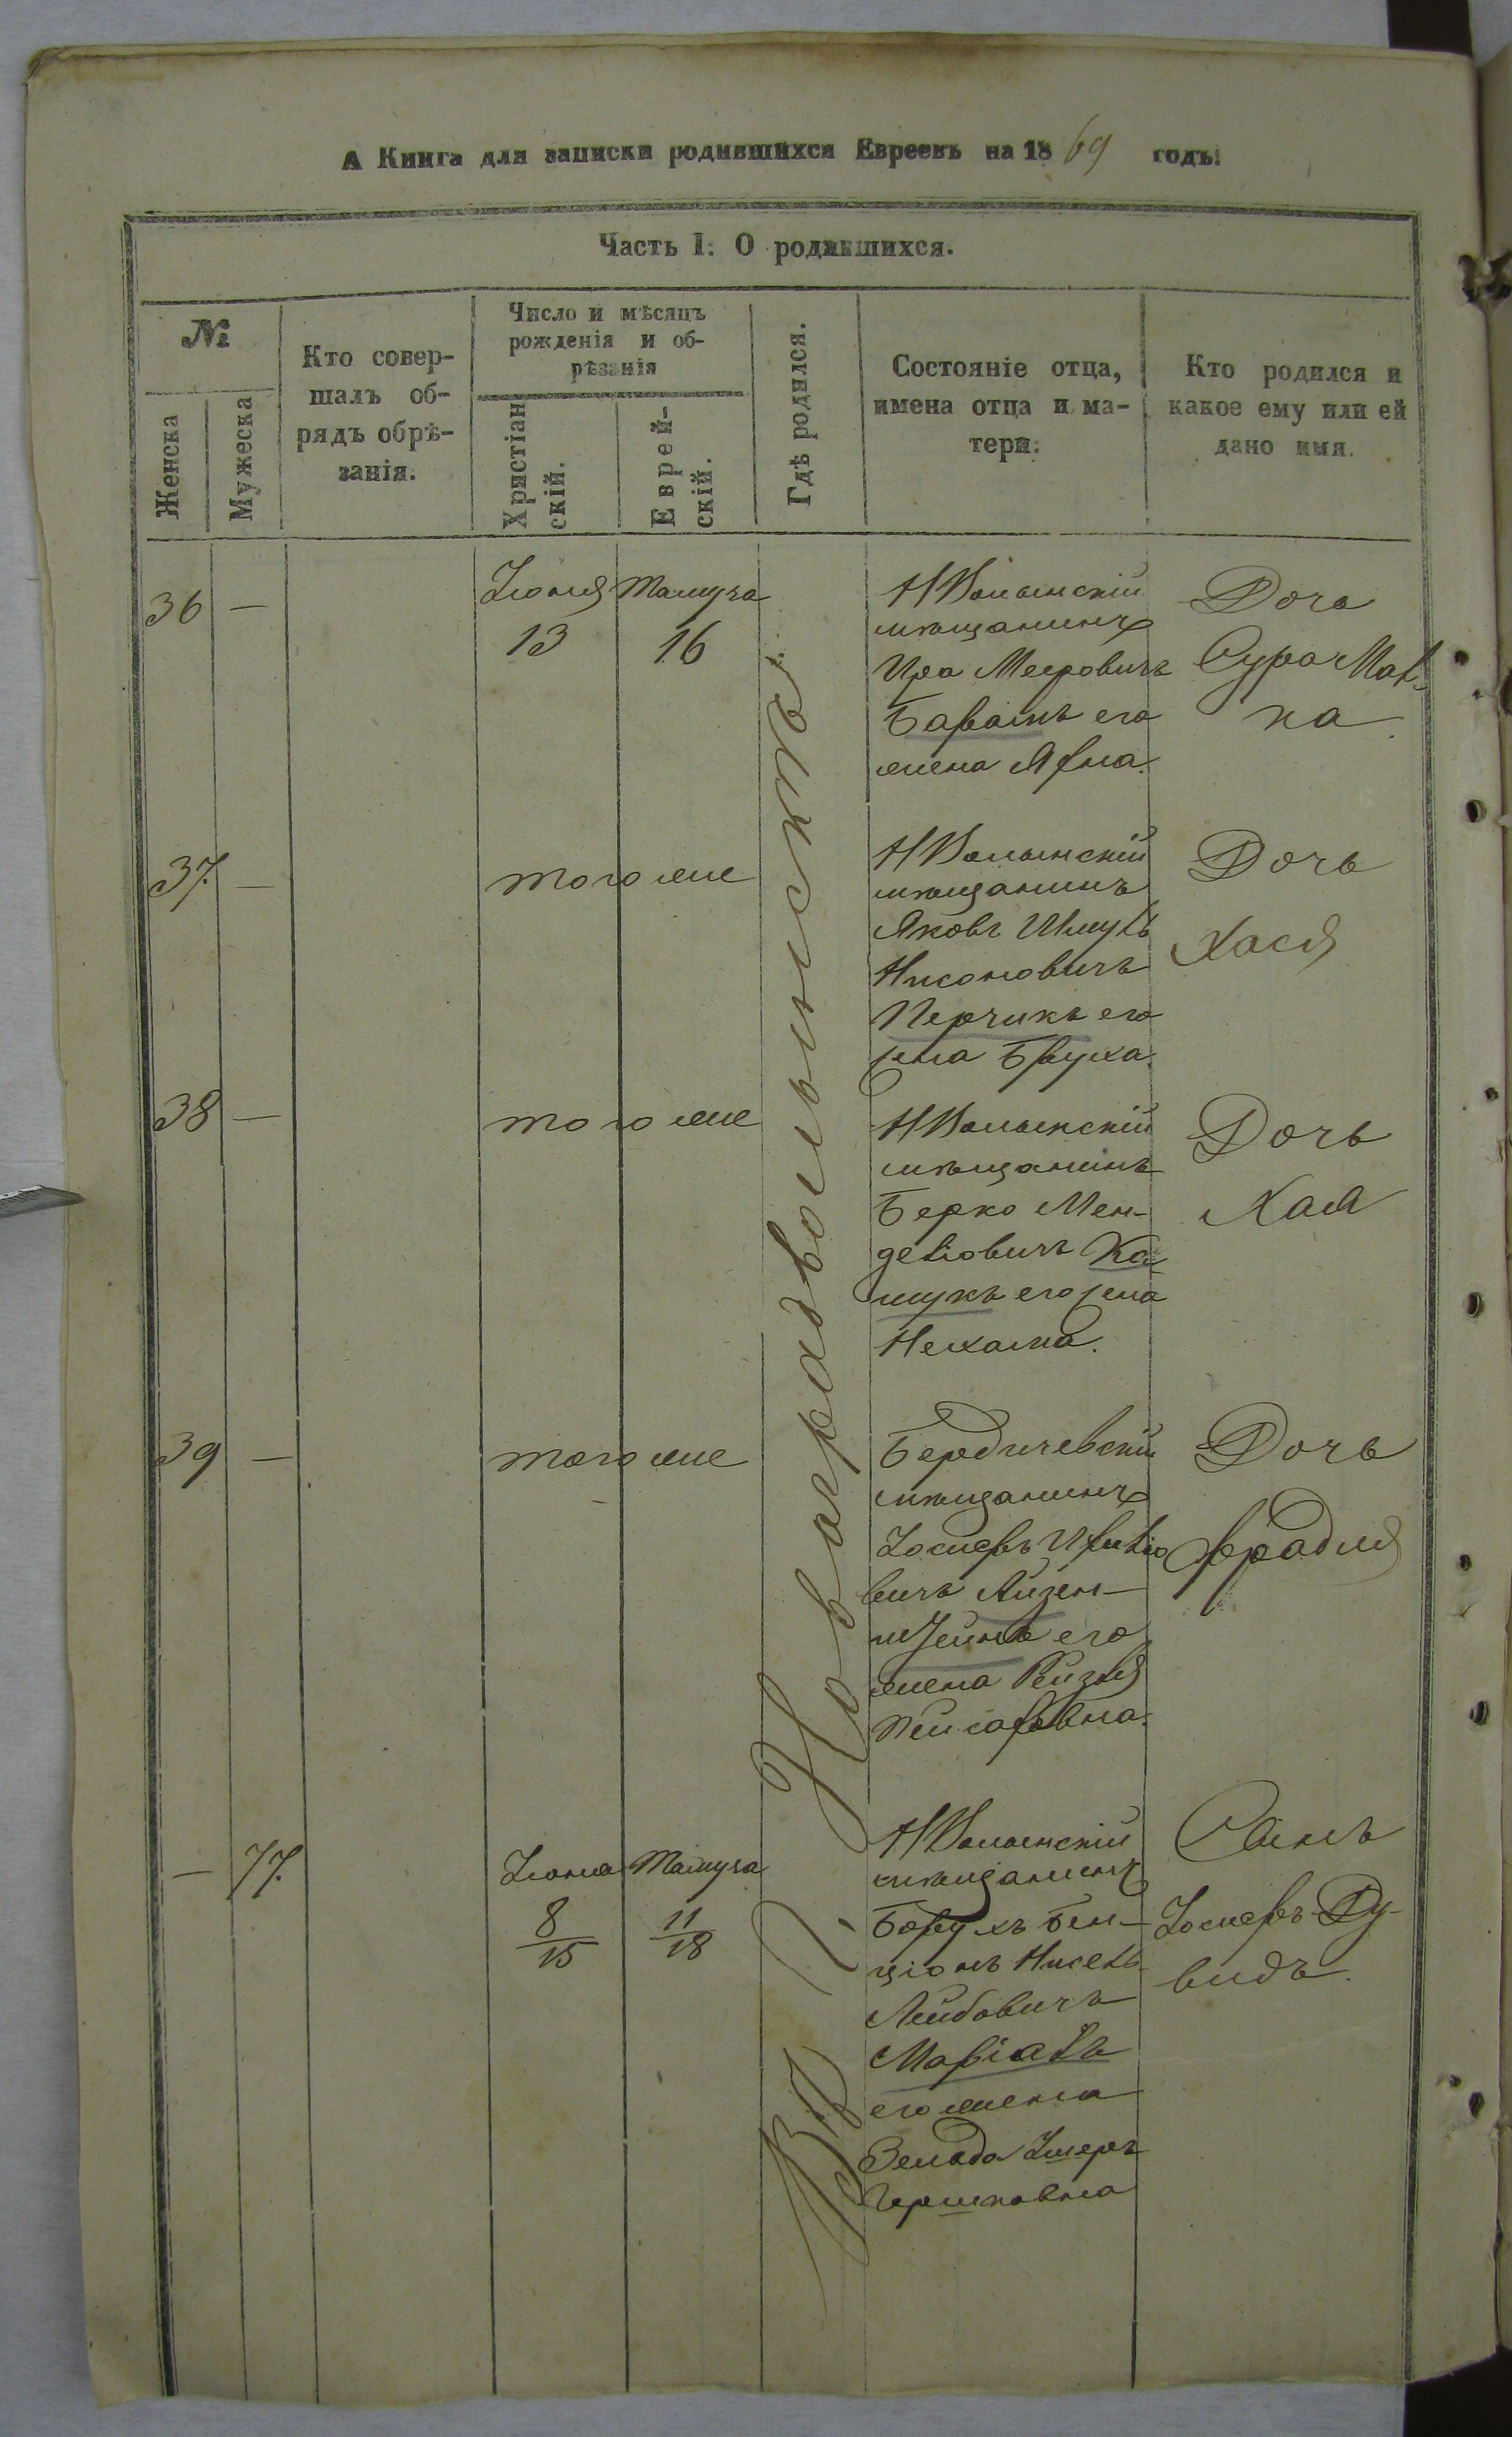 А Книга для записки родившихся Евреевъ на 1869 годъ.
Часть I. О родившихся.
№
Женска
Мужеска
Кто совер-
шалъ об-
рядъ обрѣ-
занія.
Число и мѣсяцъ
рожденія и об-
рѣзанія
Христіан
скій.
Еврей-
скій.
Гдѣ родился.
Состояніе отца,
имена отца и ма-
тери.
Кто родился и
какое ему или ей
дано имя.
В г. Новоградволынскѣ
36 —
Іюня Тамуза
13 16
НВолынскій
мѣщанинъ
Мееровичъ
его
жена
Дочь
Сура Мал-
ка
37. —
того же
НВолынскій
мѣщанинъ
Яковъ Шмуль
Нисоновичъ
Перчикъ его
жена Бруха.
Дочь
Хася
38 —
того же
НВолынскій
мѣщанинъ
Берко Мен-
делiовичъ Ка-
щукъ его жена
Нехама.
Дочь
Хая
39 —
того же
Бердичевскій
мѣщанинъ
Іосифъ
вичъ Айзен-
штейнъ его
жена Рейзля
Дочь
Фрадля
— 77.
Іюня Тамуза
8/15 11/18
НВолынскій
мѣщанинъ
Борухъ Бен-
ціонъ Нисель
Лейбовичъ
его жена
Гершковна
Сынъ
Іосифъ Ду-
видъ.